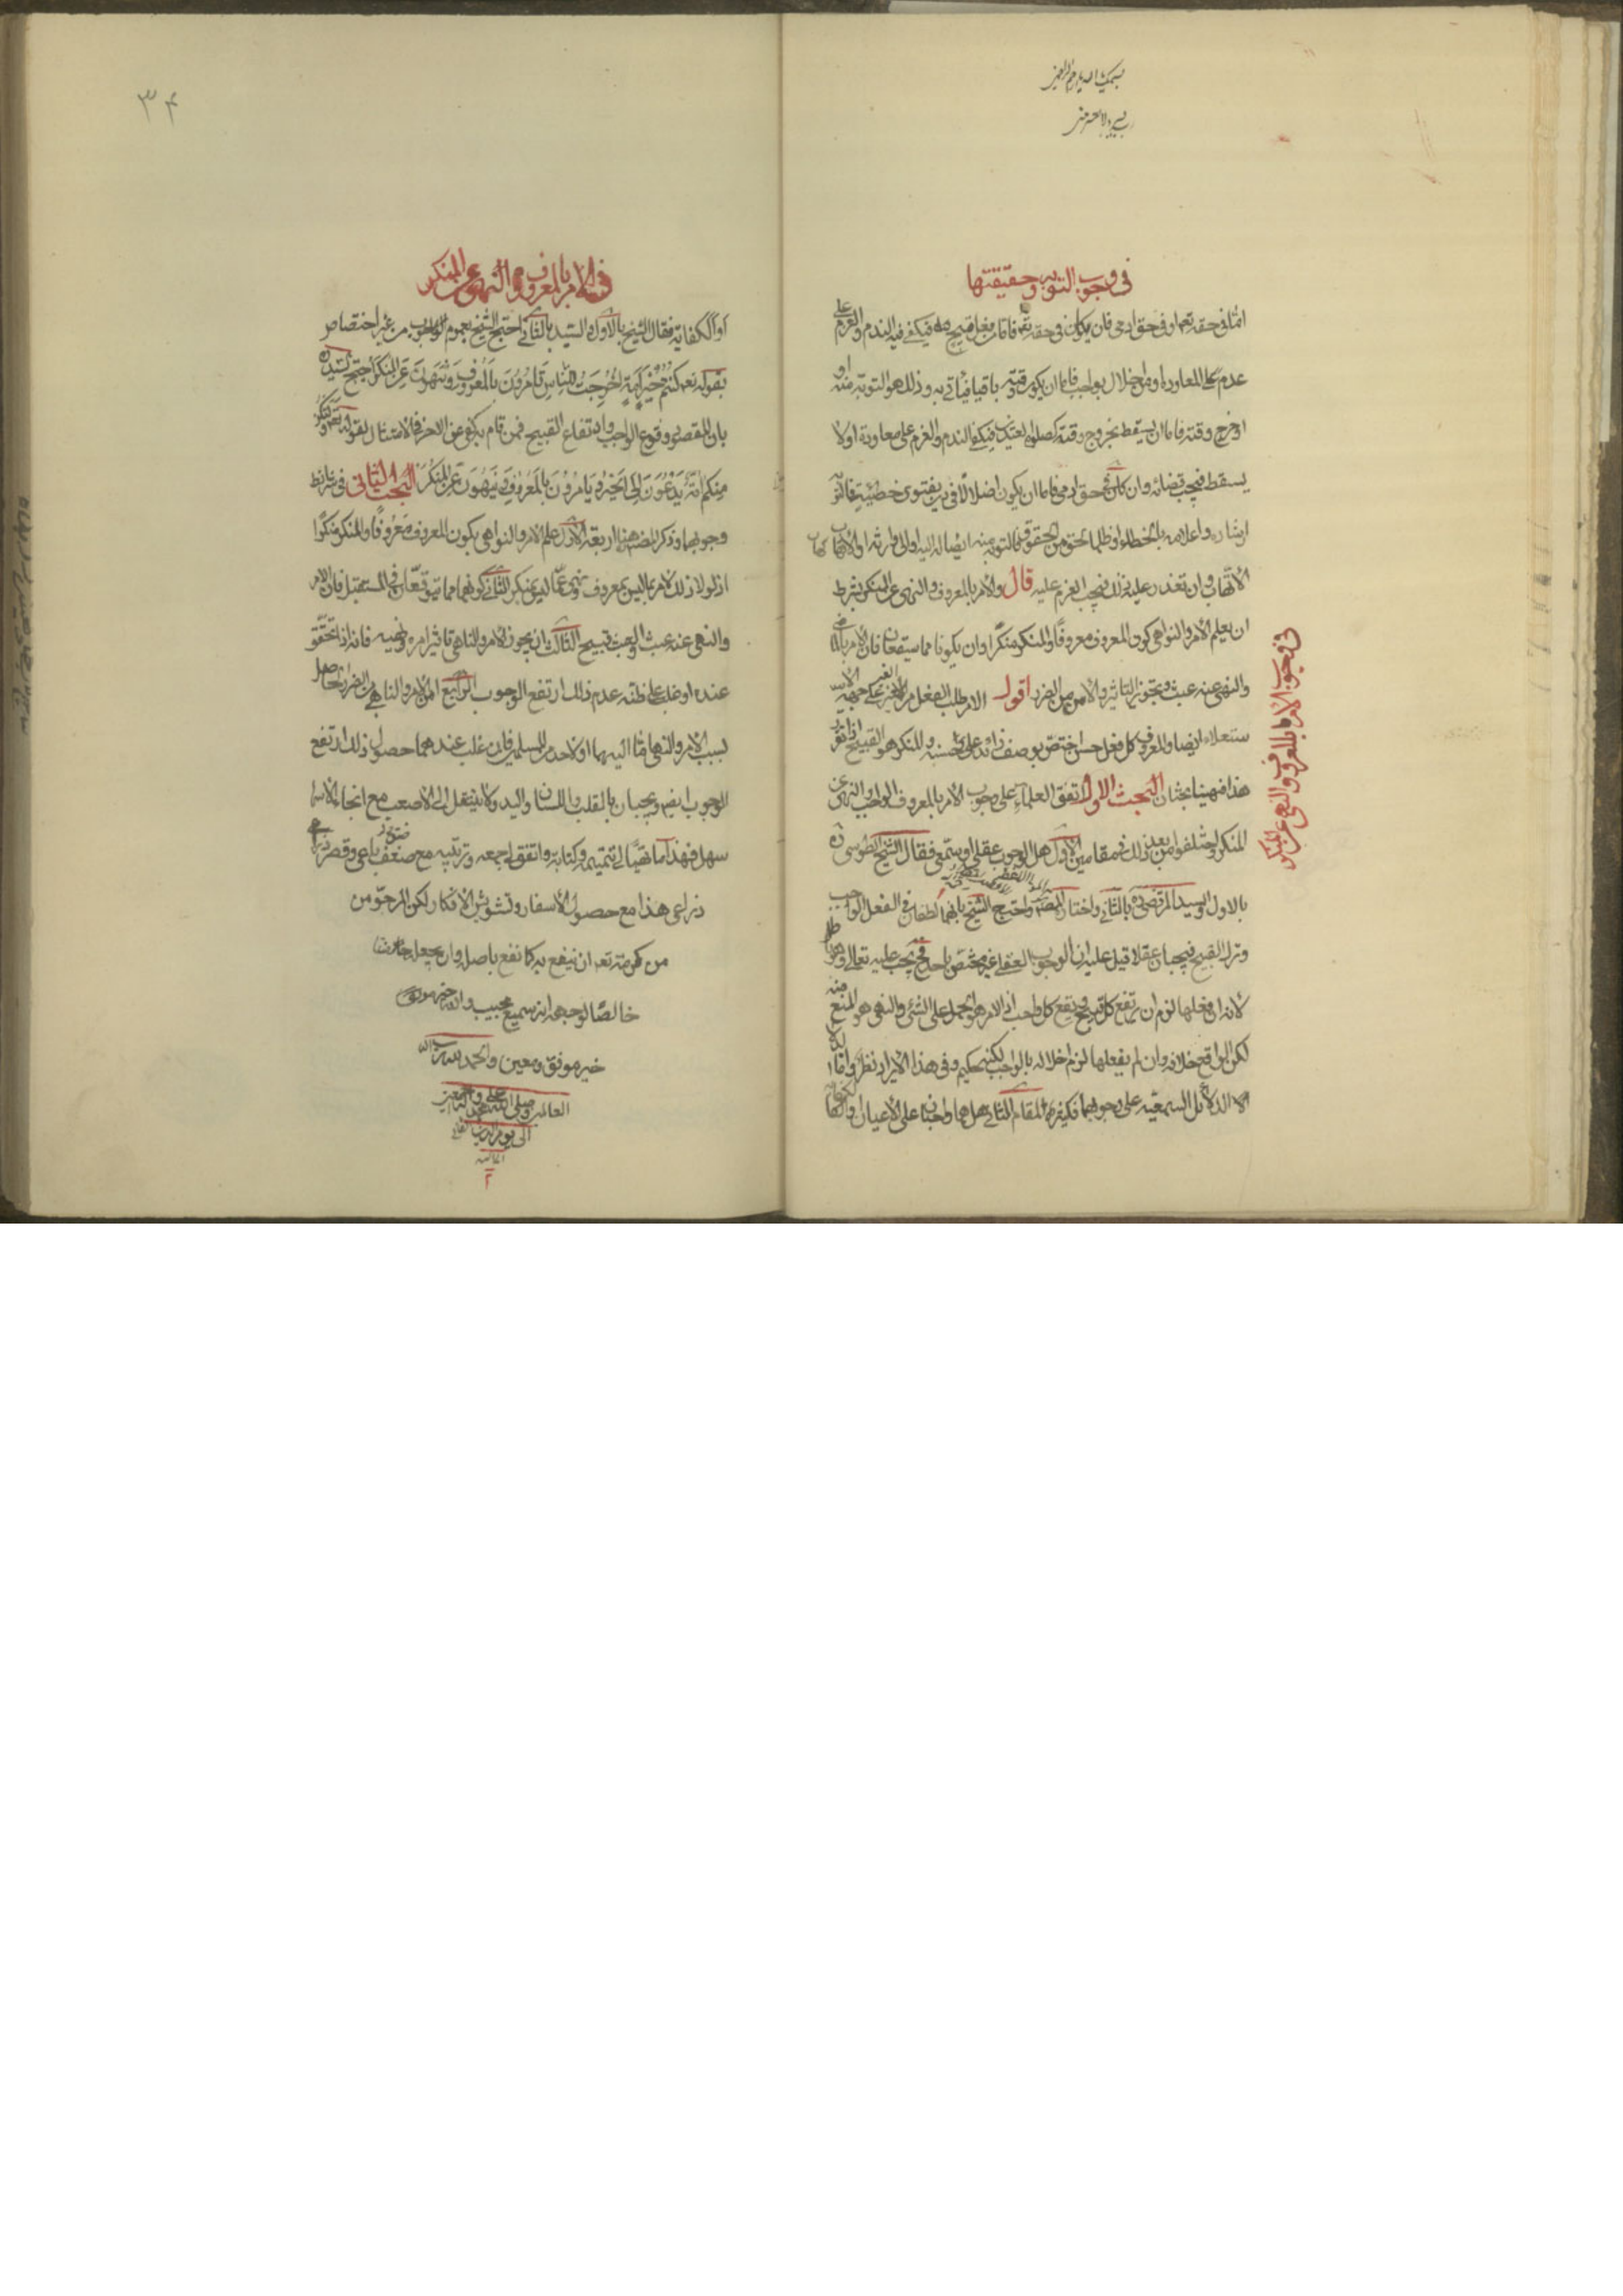 في وجوب التوبه وحقيقتها
اما في حقه تعه او في حق ادمي فان كان في حقه تعه فاما من فعل قبيح فيكفي فيه الندم والعزم على
عدم المعاودة او من اخلال بواجب فاما ان يكون وقته باقيا فيأتي به وذلك هو التوبة منه او
خرج وقته فاما ان يسقط بخروج وقته كصلوة العيدين فيكفي الندم والعزم على معاودة اولا
يسقط فيجب قضائه وان كان في حق ادمي فاما ان يكون اضلالا في دين بفتوى خطيئة فالتوبة
ارشاده واعلامه بالخطاء او ظلما بحق من الحقوق فالتوبة منه ايصاله اليه او الى وارثه او الاتهاب
الاتهاب وان تعذر عليه ذلك فيجب العزم عليه قال والامر بالمعروف والنهى عن المنكر بشرط
ان يعلم الامر والنواهي كون المعروف معروفا والمنكر منكرا وان يكونا مما سيقعان فان الامر بالماضي
والنهي عنه عبث وتجويز التاثير والامن من الضرر اقول الامر طلب الفعل من الغير على جهة الاستـ
ستعلاء ايضا والمعروف كل فعل حسن اختص بوصف زائد على حسنه والمنكر هو القبيح اذا تقرر
هذا فههنا بحثان البحث الاول اتفق العلماء على وجوب الامر بالمعروف الواجب والنهى عن
المنكر واختلفوا من بعد ذلك في مقامين الاول هل الوجوب عقلى او سمعى فقال الشيخ الطوسي ره
بالاول والسيد المرتضى ره بالثاني واختاره المصنف واحتج الشيخ بانهما لطفان في الفعل الواجب
وترك القبيح فيجبان عقلا قيل عليه ان الوجوب العقلي غير مختص باحد فح يجب عليه تعالى وهو باطل
لانه ان فعلها لزم ان يرتفع كل قبيح ويقع كل واجب اذ الامر هو الحمل على الشئ والنهى هو المنع منه
لكن الواقع خلافه وان لم يفعلها لزم اخلاله بالواجب لكنه حكيم وفى هذا الايراد نظر واما
الدلائل السمعيه على وجوبهما فكثيرة المقام الثاني هل هما واجبان على الاعيان او الكفا
في وجوب الامر بالمعروف والنهى عن المنكر
٣٤
في الامر بالمعروف والنهى عن المنكر
او الكفاية فقال الشيخ بالاول والسيد بالثاني احتج الشيخ بعموم الوجوب من غير اختصاص
بقوله تعه كنتم خير امة اخرجت للناس تامرون بالمعروف وتنهون عن المنكر احتج السيد ره
بان المقصود وقوع الواجب وارتفاع القبيح فمن قام به كفى عن الاخر في الامتثال لقوله تعه ولتكن
منكم امة يدعون الى الخير ويامرون بالمعروف وينهون عن المنكر البحث الثاني فى شرائط
وجوبهما وذكر المصنف هنا اربعة الاول علم الامر والنواهي بكون المعروف معروفا والمنكر منكرا
اذ لولا ذلك لامر بما ليس بمعروف ونهى عما ليس بمنكر الثاني كونهما مما يتوقعان في المستقبل فان الامر
والنهى عنه عبث والعبث قبيح الثالث ان يجوز الامر والناهي تاثير امره ونهيه فانه اذا تحقق
عنده او غلب على ظنه عدم ذلك ارتفع الوجوب الرابع امن الامر والناهي من الضرر الحاصل
بسبب الامر والنهى اما اليهما او لاحد من المسلمين فان غلب عندهما حصول ذلك ارتفع
الوجوب ايضا ويجبان بالقلب واللسان واليد ولا ينتقل الى الاصعب مع انجاء الاسهل
سهل فهذا ما تهيأ لى تتميمه وكتابته واتفق لى جمعه وترتيبه مع ضعف باعى وقصر
ذراعى هذا مع حصول الاسفار وتشويش الافكار لكن المرجو من
من كرمه تعه ان ينفع به كما نفع باصله وان يجعله
خالصا لوجهه انه سميع مجيب والله خير موفق
خير موفق ومعين والحمد لله رب
العالمين وصلى الله على محمد واله اجمعين
الى يوم الدين